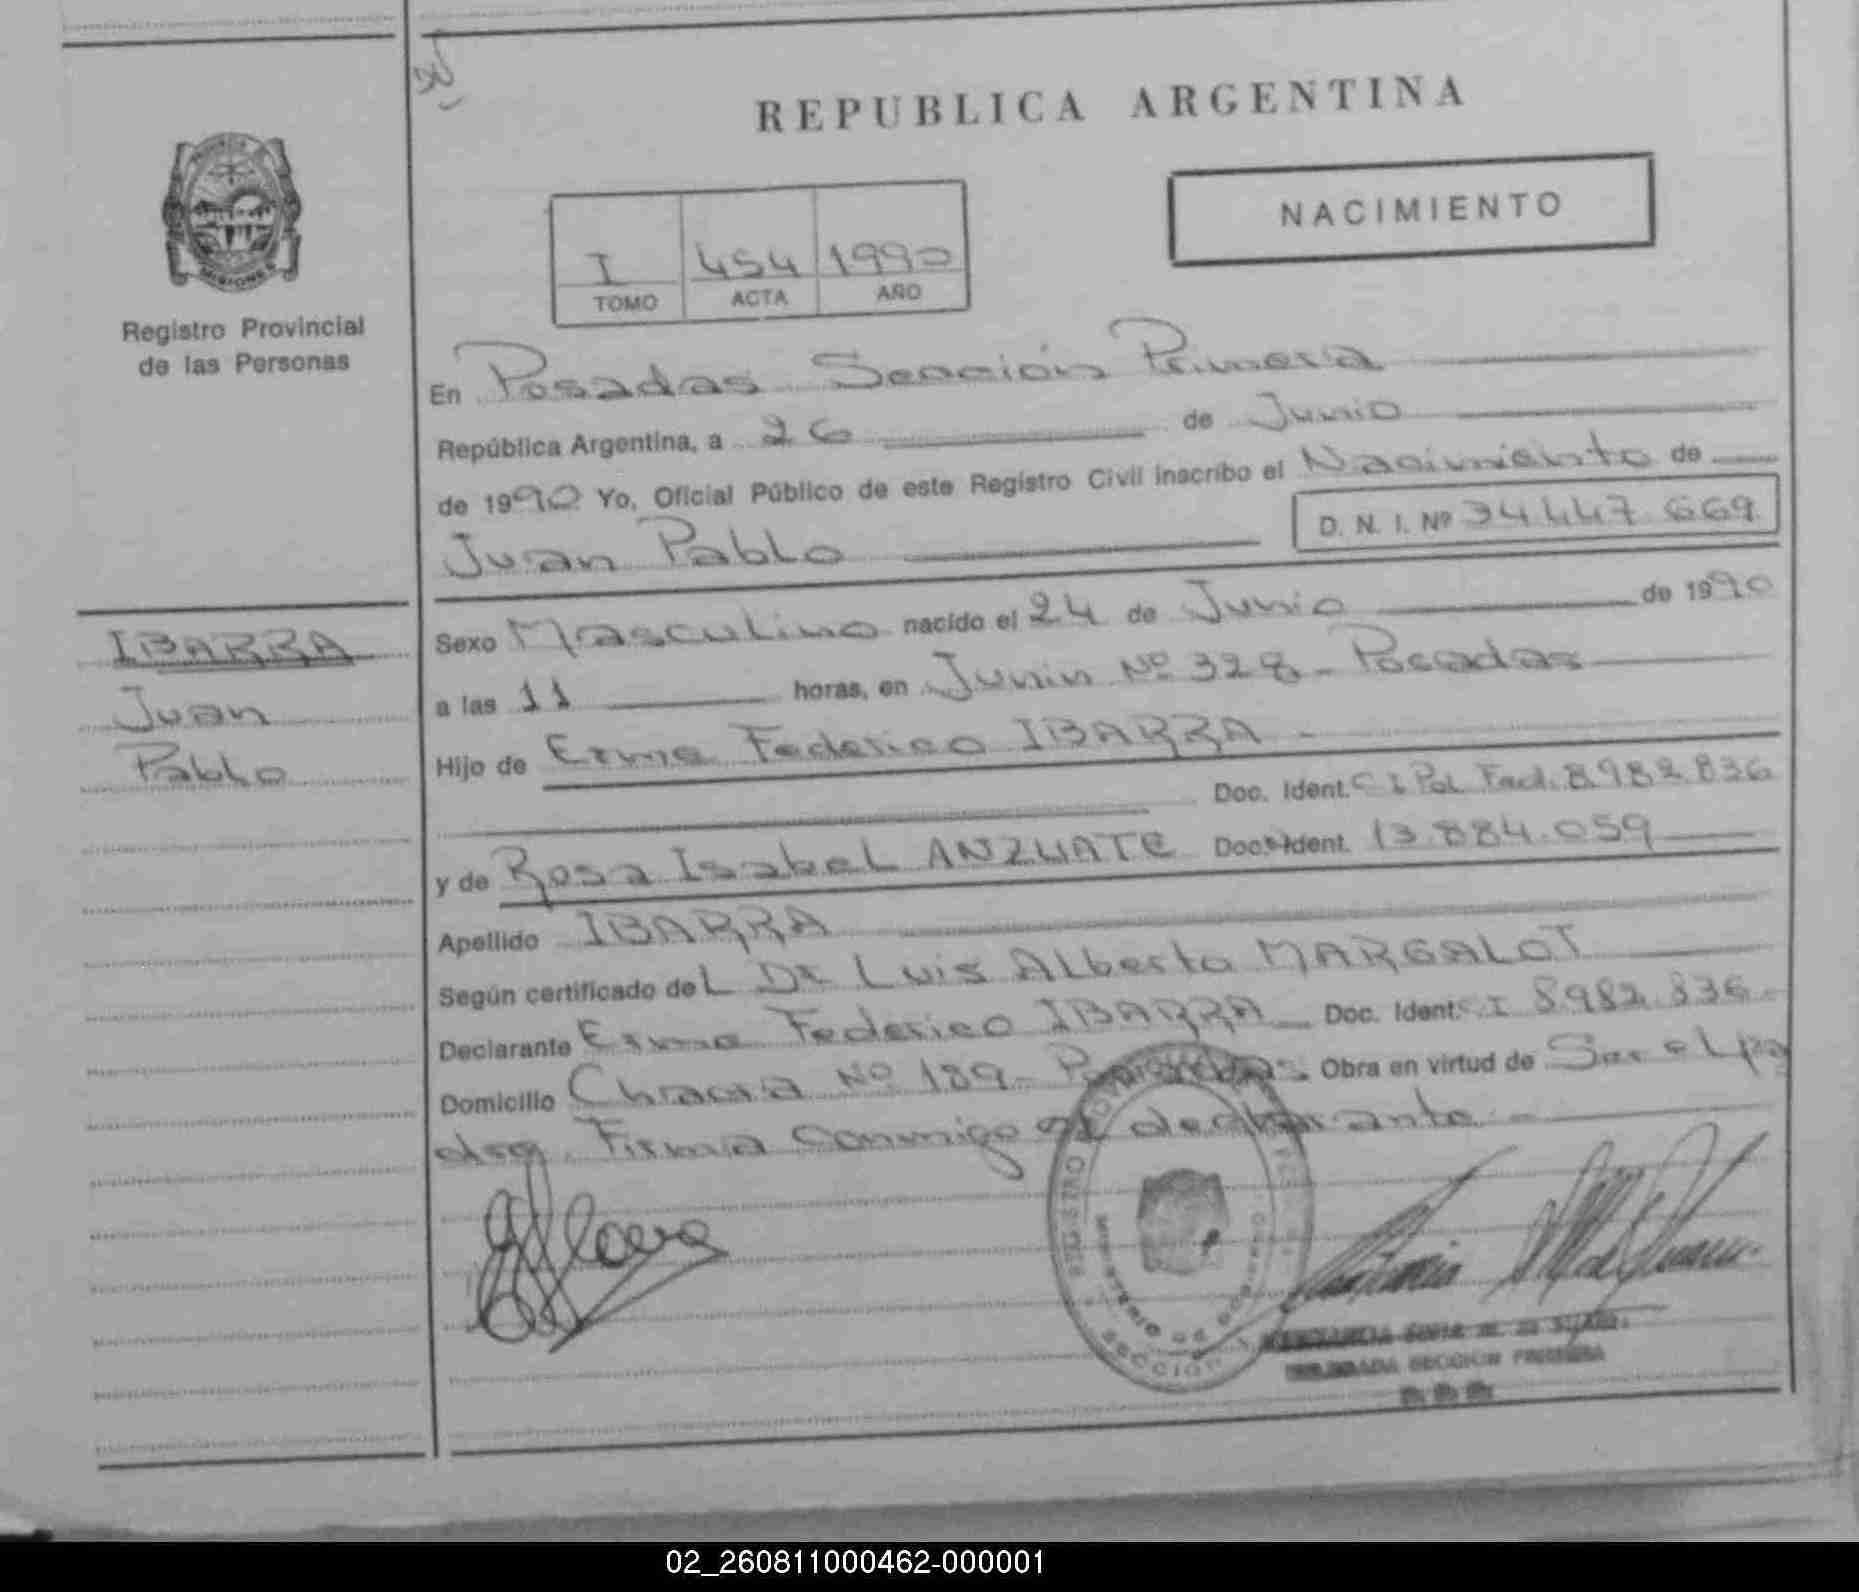 REPUBLICA ARGENTINA
NACIMIENTO
I 454 1990
TOMO ACTA AÑO
PROVINCIA
MISIONES
Registro Provincial
de las Personas
En Posadas Sección Primera
República Argentina, a 26 de Junio
de 1990 Yo, Oficial Público de este Registro Civil inscribo el Nacimiento de
Juan Pablo D. N. I. Nº 34.447.669
IBARRA
Juan
Pablo
Sexo Masculino nacido el 24 de Junio de 1990
a las 11 horas, en Junin Nº 328 - Posadas
Hijo de Federico IBARRA -
Doc. Ident. C I Pol Fed. 8.982.836
y de Rosa Isabel ANZUATE Doc. Ident. 13.884.059
Apellido IBARRA
Según certificado del Dr Luis Alberto MARGALOT
Declarante Federico IBARRA Doc. Ident. C I 8982.836-
Domicilio Chacra Nº 189- Posadas. Obra en virtud de
Firma conmigo el declarante -
SECCION
DELEGADA SECCION PRIMERA
02_260811000462-000001